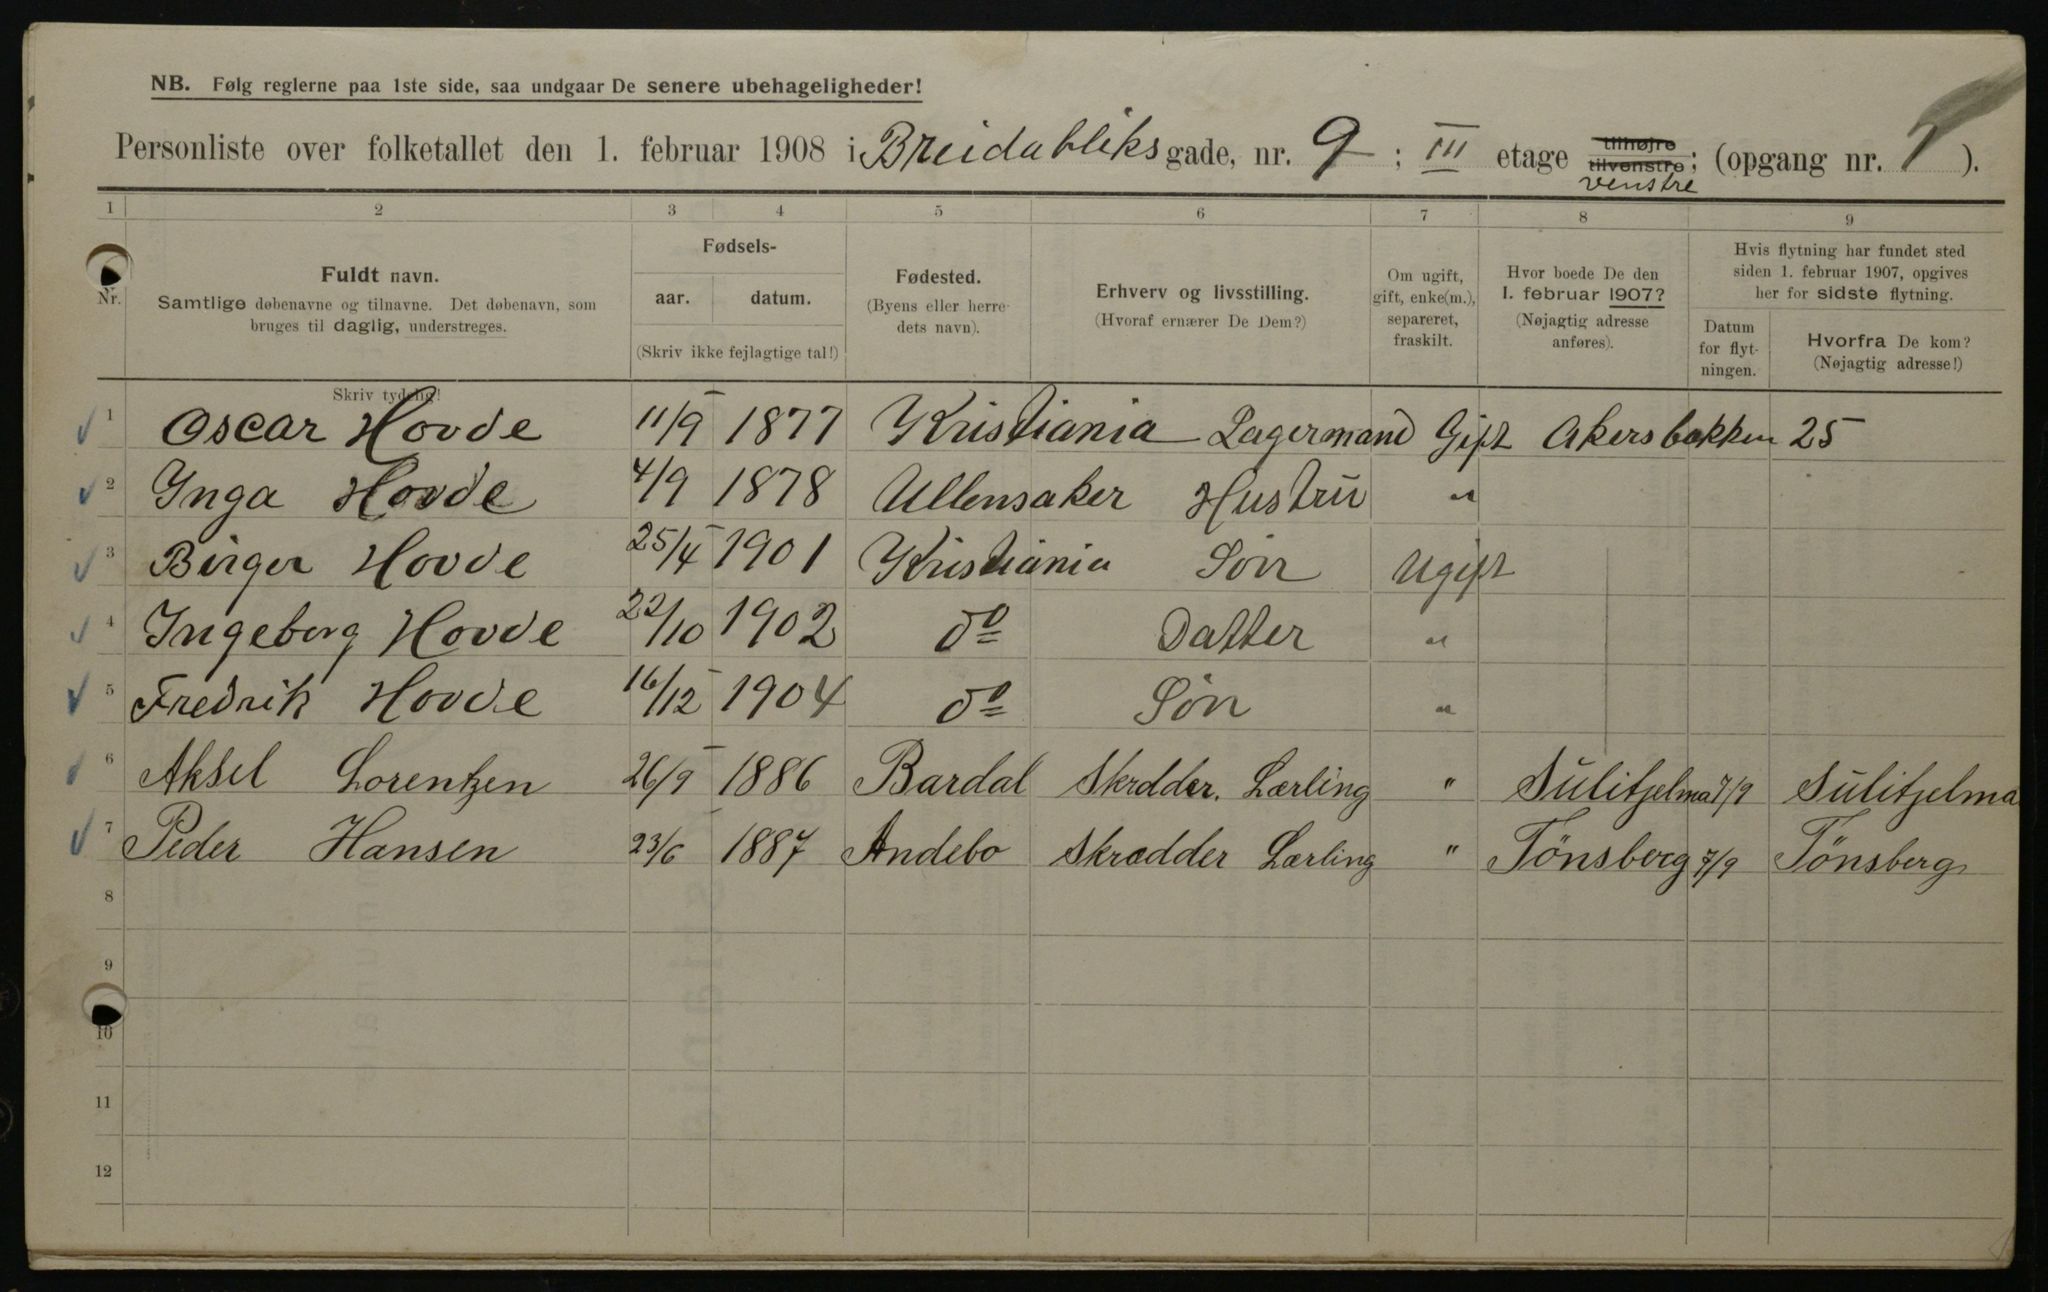 NB. Følg reglerne paa 1ste side, saa undgaar De senere ubehageligheder!
Personliste over folketallet den 1. februar 1908 i Breidabliks gade, nr. 9 ; III etage tilhøjre tilvenstre; venstre (opgang nr. 1 ).
1 2 3 4 5 6 7 8 9
Nr. Fuldt navn. Samtlige døbenavne og tilnavne. Det døbenavn, som bruges til daglig, understreges.
Skriv tydelig!
Fødsels-
aar. datum.
(Skriv ikke fejlagtige tal!)
Fødested. (Byens eller herredets navn).
Erhverv og livsstilling. (Hvoraf ernærer De Dem?)
Om ugift, gift, enke(m.), separeret, fraskilt.
Hvor boede De den 1. februar 1907? (Nøjagtig adresse anføres).
Hvis flytning har fundet sted siden 1. februar 1907, opgives her for sidste flytning.
Datum for flytningen.
Hvorfra De kom? (Nøjagtig adresse!)
1 Oscar Hovde 11/9 1877 Kristiania Lagermand Gift Akersbakken 25
2 Inga Hovde 4/9 1878 Ullensaker Hustru "
3 Birger Hovde 25/4 1901 Kristiania Sön Ugift
4 Ingeborg Hovde 22/10 1902 do Datter "
5 Fredrik Hovde 16/12 1904 do Sön "
6 Aksel Lorentzen 26/9 1886 Bardal Skrædder. Lærling " Sulitjelma 7/9 Sulitjelma
7 Peder Hansen 23/6 1887 Andebo Skrædder Lærling " Tönsberg 7/9 Tönsberg
8
9
10
11
12